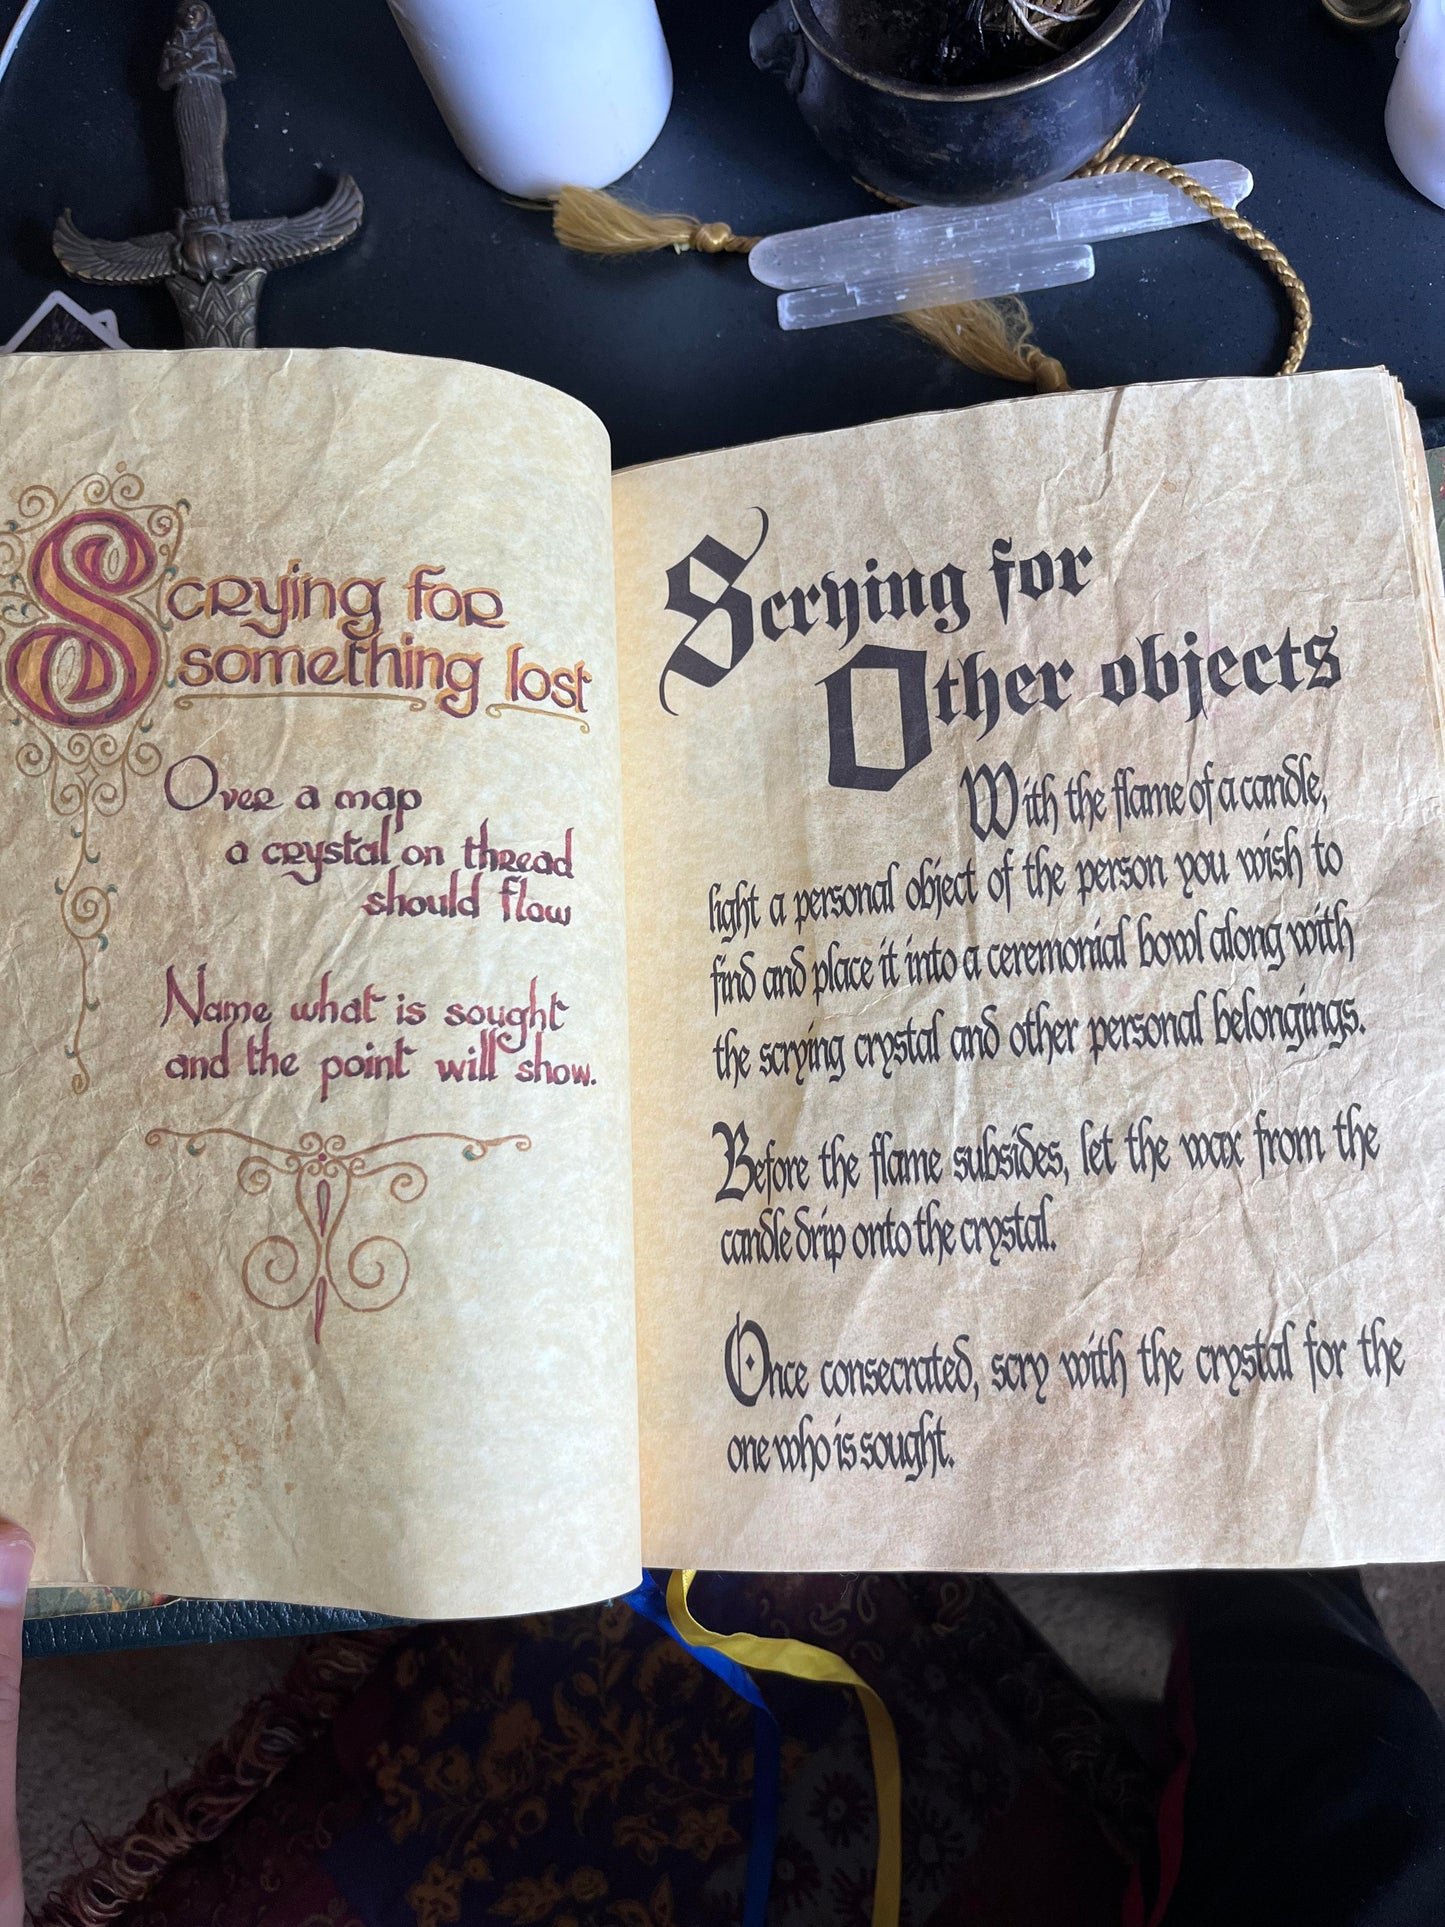 Scrying for
something lost
Over a map
a crystal on thread
should flow
Name what is sought
and the point will show.
Scrying for
Other objects
With the flame of a candle,
light a personal object of the person you wish to
find and place it into a ceremonial bowl along with
the scrying crystal and other personal belongings.
Before the flame subsides, let the wax from the
candle drip onto the crystal.
Once consecrated, scry with the crystal for the
one who is sought.